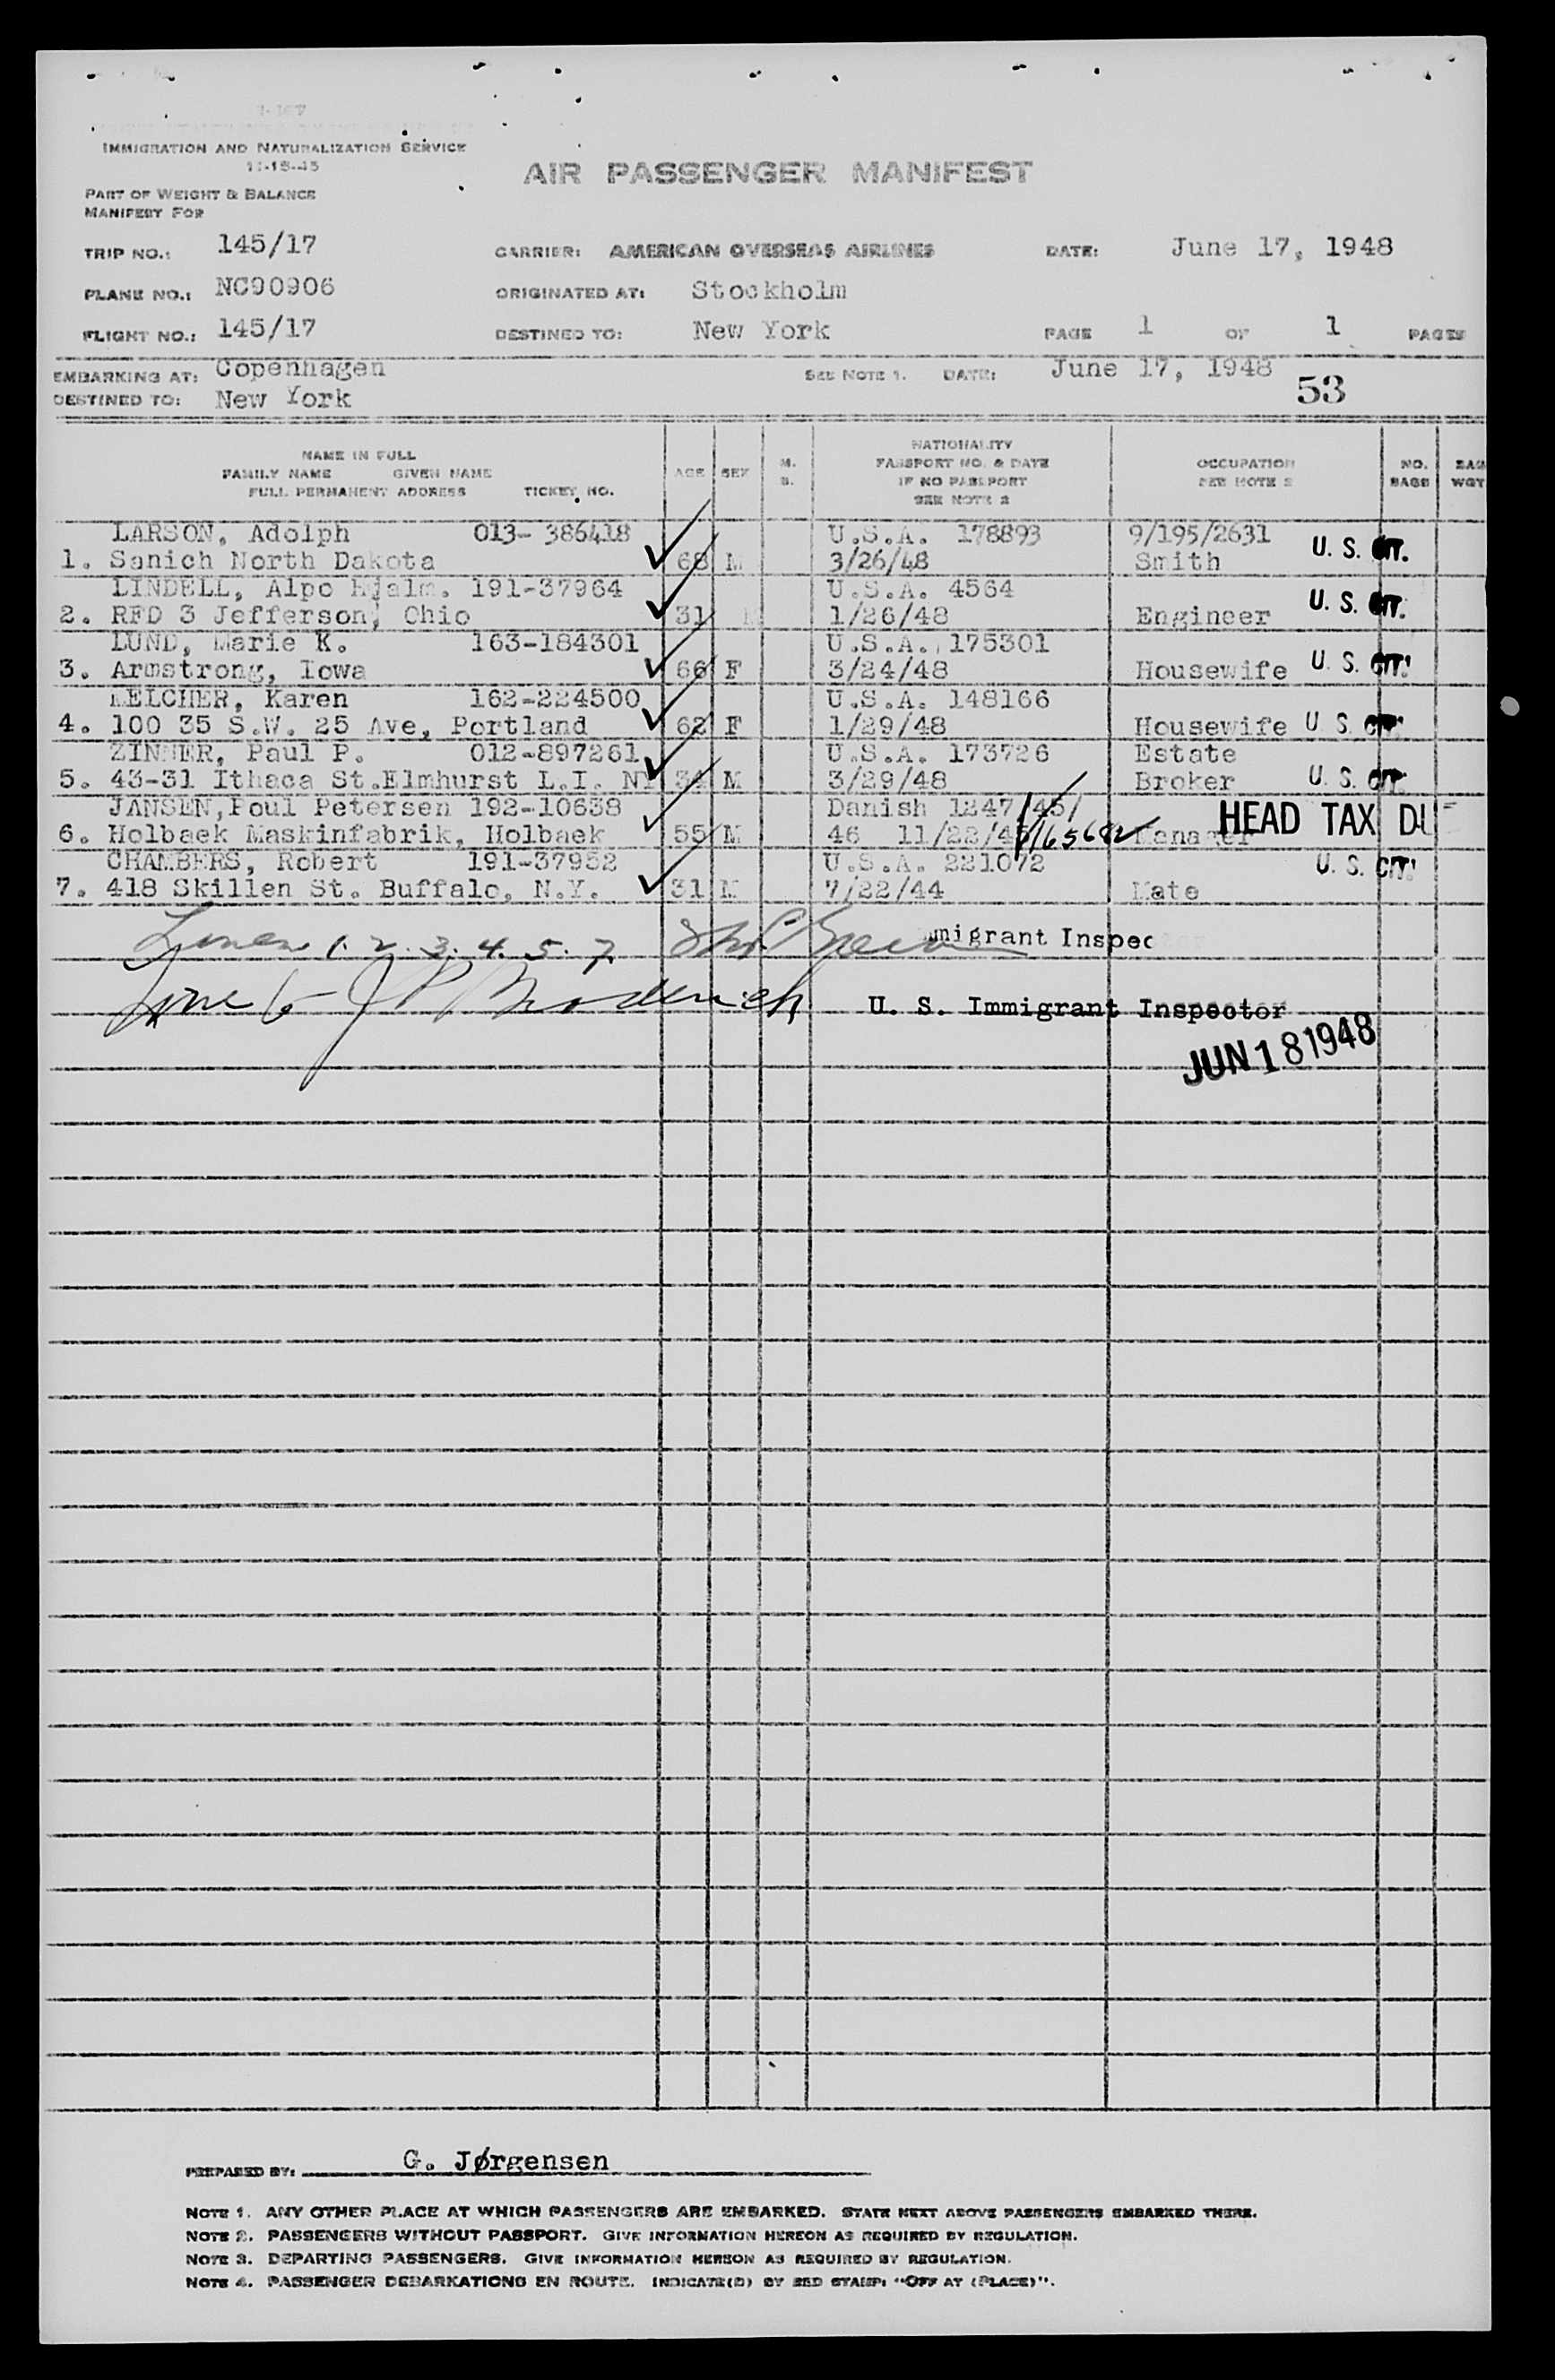 IMMIGRATION AND NATURALIZATION SERVICE
11-15-45
AIR PASSENGER MANIFEST
PART OF WEIGHT & BALANCE
MANIFEST FOR
TRIP NO.: 145/17 CARRIER: AMERICAN OVERSEAS AIRLINES DATE: June 17, 1948
PLANE NO.: NC90906 ORIGINATED AT: Stockholm
FLIGHT NO.: 145/17 DESTINED TO: New York PAGE 1 OF 1 PAGES
EMBARKING AT: Copenhagen SEE NOTE 1. DATE: June 17, 1948
DESTINED TO: New York 53
NAME IN FULL
FAMILY NAME GIVEN NAME
FULL PERMANENT ADDRESS TICKET NO. AGE SEX M. S. NATIONALITY
PASSPORT NO. & DATE
IF NO PASSPORT
SEE NOTE 2
OCCUPATION
SEE NOTE 2
NO.
BAGS
BAG
WGT
LARSON, Adolph 013- 386418 U.S.A. 178893 9/195/2631
1. Sanich North Dakota 68 M 3/26/48 Smith U. S. CIT.
LINDELL, Alpo Hjalm. 191-37964 U.S.A. 4564
2. RFD 3 Jefferson, Ohio 31 M 1/26/48 Engineer U. S. CIT.
LUND, Marie K. 163-184301 U.S.A. 175301
3. Armstrong, Iowa 66 F 3/24/48 Housewife U. S. CIT.
MELCHER, Karen 162-224500 U.S.A. 148166
4. 100 35 S.W. 25 Ave, Portland 62 F 1/29/48 Housewife U. S. CIT.
ZINNER, Paul P. 012-897261 U.S.A. 173726 Estate
5. 43-31 Ithaca St.Elmhurst L.I. NY 34 M 3/29/48 Broker U. S. CIT.
JANSEN,Poul Petersen 192-10638 Danish 1247/45/
6. Holbaek Maskinfabrik, Holbaek 55 M 46 11/22/45 Manager HEAD TAX DUE
CHAMBERS, Robert 191-37952 U.S.A. 221072
7. 418 Skillen St. Buffalo, N.Y. 31 M 7/22/44 Mate U. S. CIT.
Lines 1. 2. 3. 4. 5. 7. migrant Inspec
Line 6 J P Broderick U. S. Immigrant Inspector
JUN 18 1948
PREPARED BY: G. Jørgensen
NOTE 1. ANY OTHER PLACE AT WHICH PASSENGERS ARE EMBARKED. STATE NEXT ABOVE PASSENGERS EMBARKED THERE.
NOTE 2. PASSENGERS WITHOUT PASSPORT. GIVE INFORMATION HEREON AS REQUIRED BY REGULATION.
NOTE 3. DEPARTING PASSENGERS. GIVE INFORMATION HEREON AS REQUIRED BY REGULATION.
NOTE 4. PASSENGER DEBARKATIONS EN ROUTE. INDICATE(D) BY RED STAMP: "OFF AT (PLACE)".